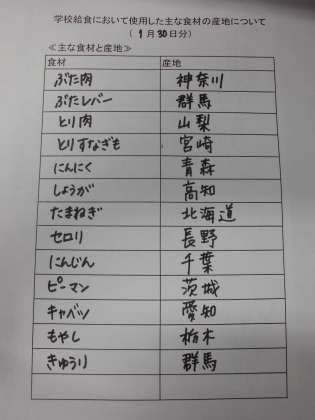 学校給食において使用した主な食材の産地について
（1月30日分）
≪主な食材と産地≫
食材 産地
ぶた肉 神奈川
ぶたレバー 群馬
とり肉 山梨
とりすなぎも 宮崎
にんにく 青森
しょうが 高知
たまねぎ 北海道
セロリ 長野
にんじん 千葉
ピーマン 茨城
キャベツ 愛知
もやし 栃木
きゅうり 群馬